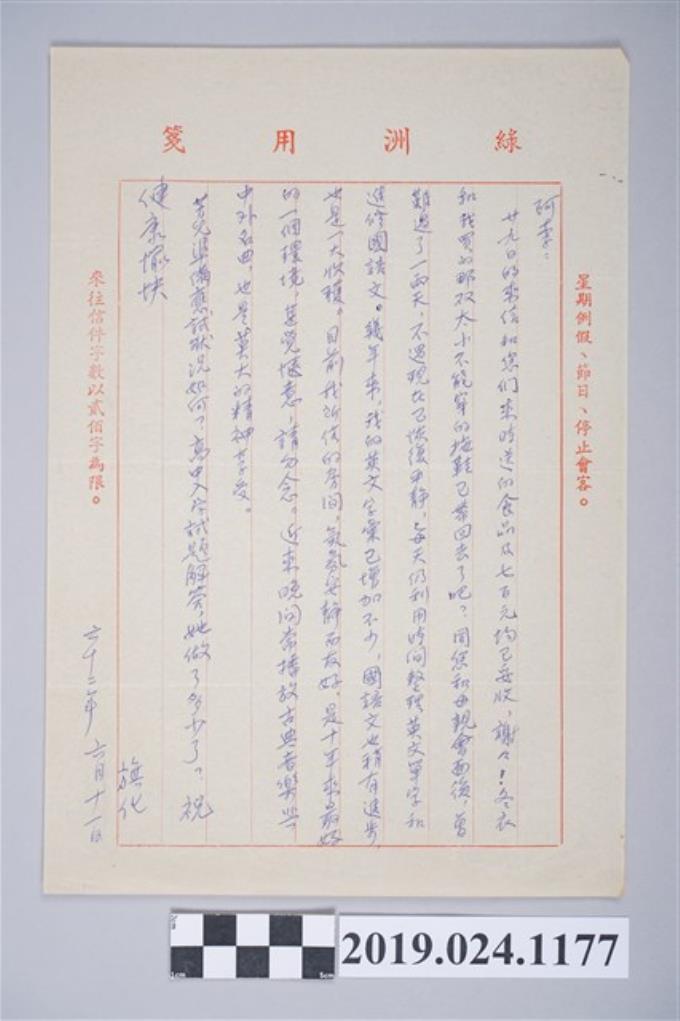 綠洲用箋
星期例假、節日、停止會客。
阿李:
廿九日的來信和您們來時送的食品及七百元均已妥收,謝々!冬衣
和我買的那双太小不能穿的拖鞋已帶回去了吧?同您和母親會面後,曾
難過了一兩天,不過現在已恢復平靜,每天仍利用時間整理英文單字和
進修國語文。幾年來,我的英文字彙已增加不少,國語文也稍有進步,
也是一大收穫。目前我所住的房间,氣氛安靜而友好,是十年來最好
的一個環境,甚覺愜意,請勿念。近來晚间常播放古典音樂些
中外名曲,也是莫大的精神享受。
芳兒準備應試狀況如何?高中入学試題解答,她做了多少了?祝
健康愉快
旗化
六十二年六月十一日
來往信件字數以貳佰字為限。
2019.024.1177
1cm
5cm